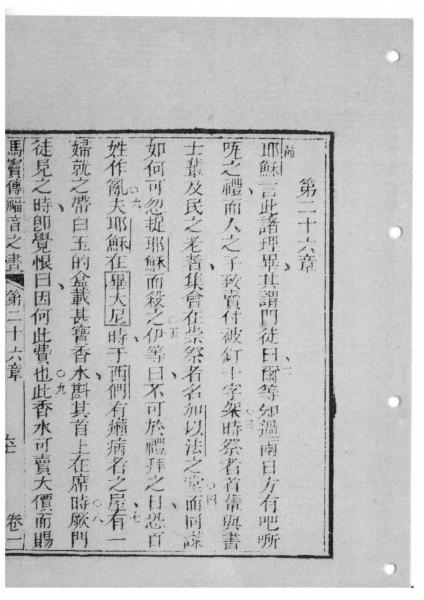 第二十六章
耶穌言此諸理畢其謂門徒曰爾等知過兩日方有吧嘶
咓之禮而人之子致賣付被釘十字架時祭者首輩與書
士輩及民之老者集會在崇祭者名加以法之堂而同謀
如何可忽捉耶穌而殺之伊等曰不可於禮拜之日恐百
姓作亂夫耶穌在畢大尼時于西們有癩病者之屋有一
婦就之帶白玉的盒載甚寶香水斟其首上在席時厥門
徒見之時即覺恨曰因何此費也此香水可賣大價而賜
馬竇傳福音之書 第二十六章 卷一